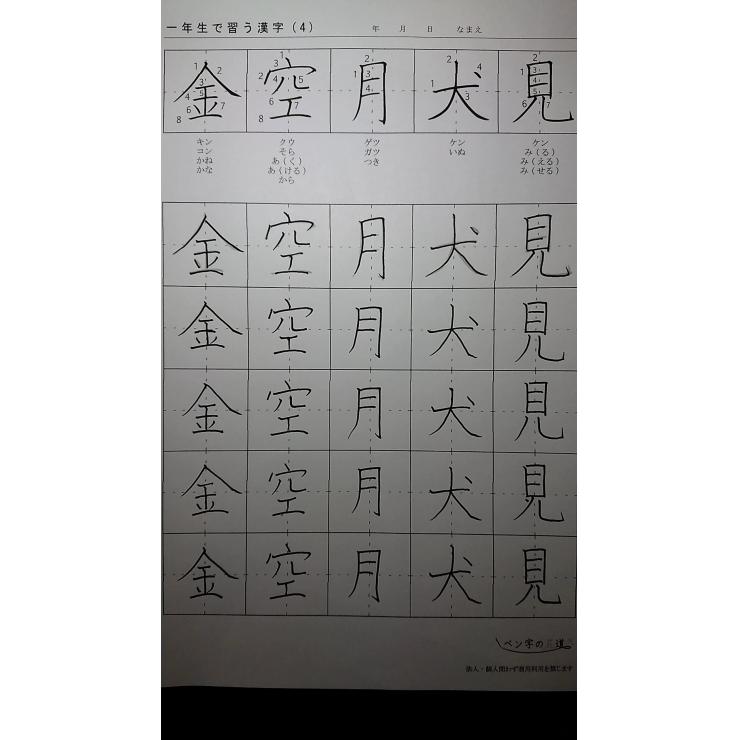 一年生で習う漢字(4) 年 月 日 なまえ
金 空 月 犬 見
キン クウ ゲツ ケン ケン
コン そら ガツ いぬ み(る)
かね あ(く) つき み(える)
かな あ(ける) み(せる)
から
金 空 月 犬 見
金 空 月 犬 見
金 空 月 犬 見
金 空 月 犬 見
金 空 月 犬 見
ペン字の 道
法人・個人問わず商用利用を禁じます